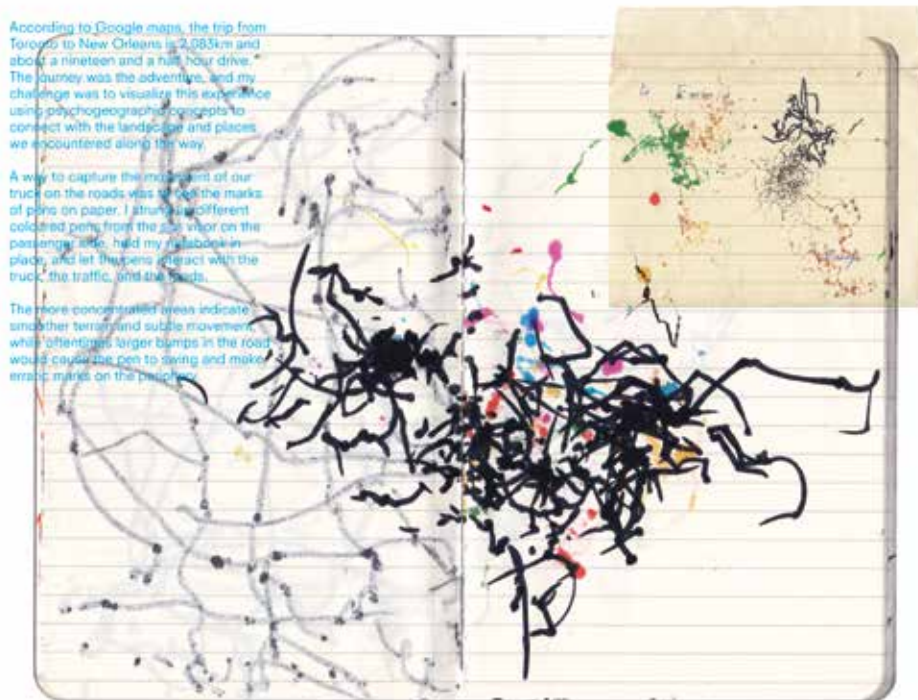 According to Google maps, the trip from
Toronto to New Orleans is 2,083km and
about a nineteen and a half hour drive.
The journey was the adventure, and my
challenge was to visualize this experience
using psychogeographic concepts to
connect with the landscape and places
we encountered along the way.
A way to capture the movement of our
truck on the roads was to use the marks
of pens on paper. I strung different
coloured pens from the sun visor on the
passenger side, held my notebook in
place, and let the pens interact with the
truck, the traffic, and the roads.
The more concentrated areas indicate
smoother terrain and subtle movement,
while oftentimes larger bumps in the road
would cause the pen to swing and make
erratic marks on the periphery.